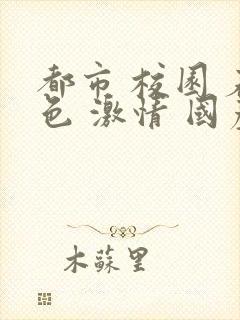 都市 校园
色 激情 國
木蘇里